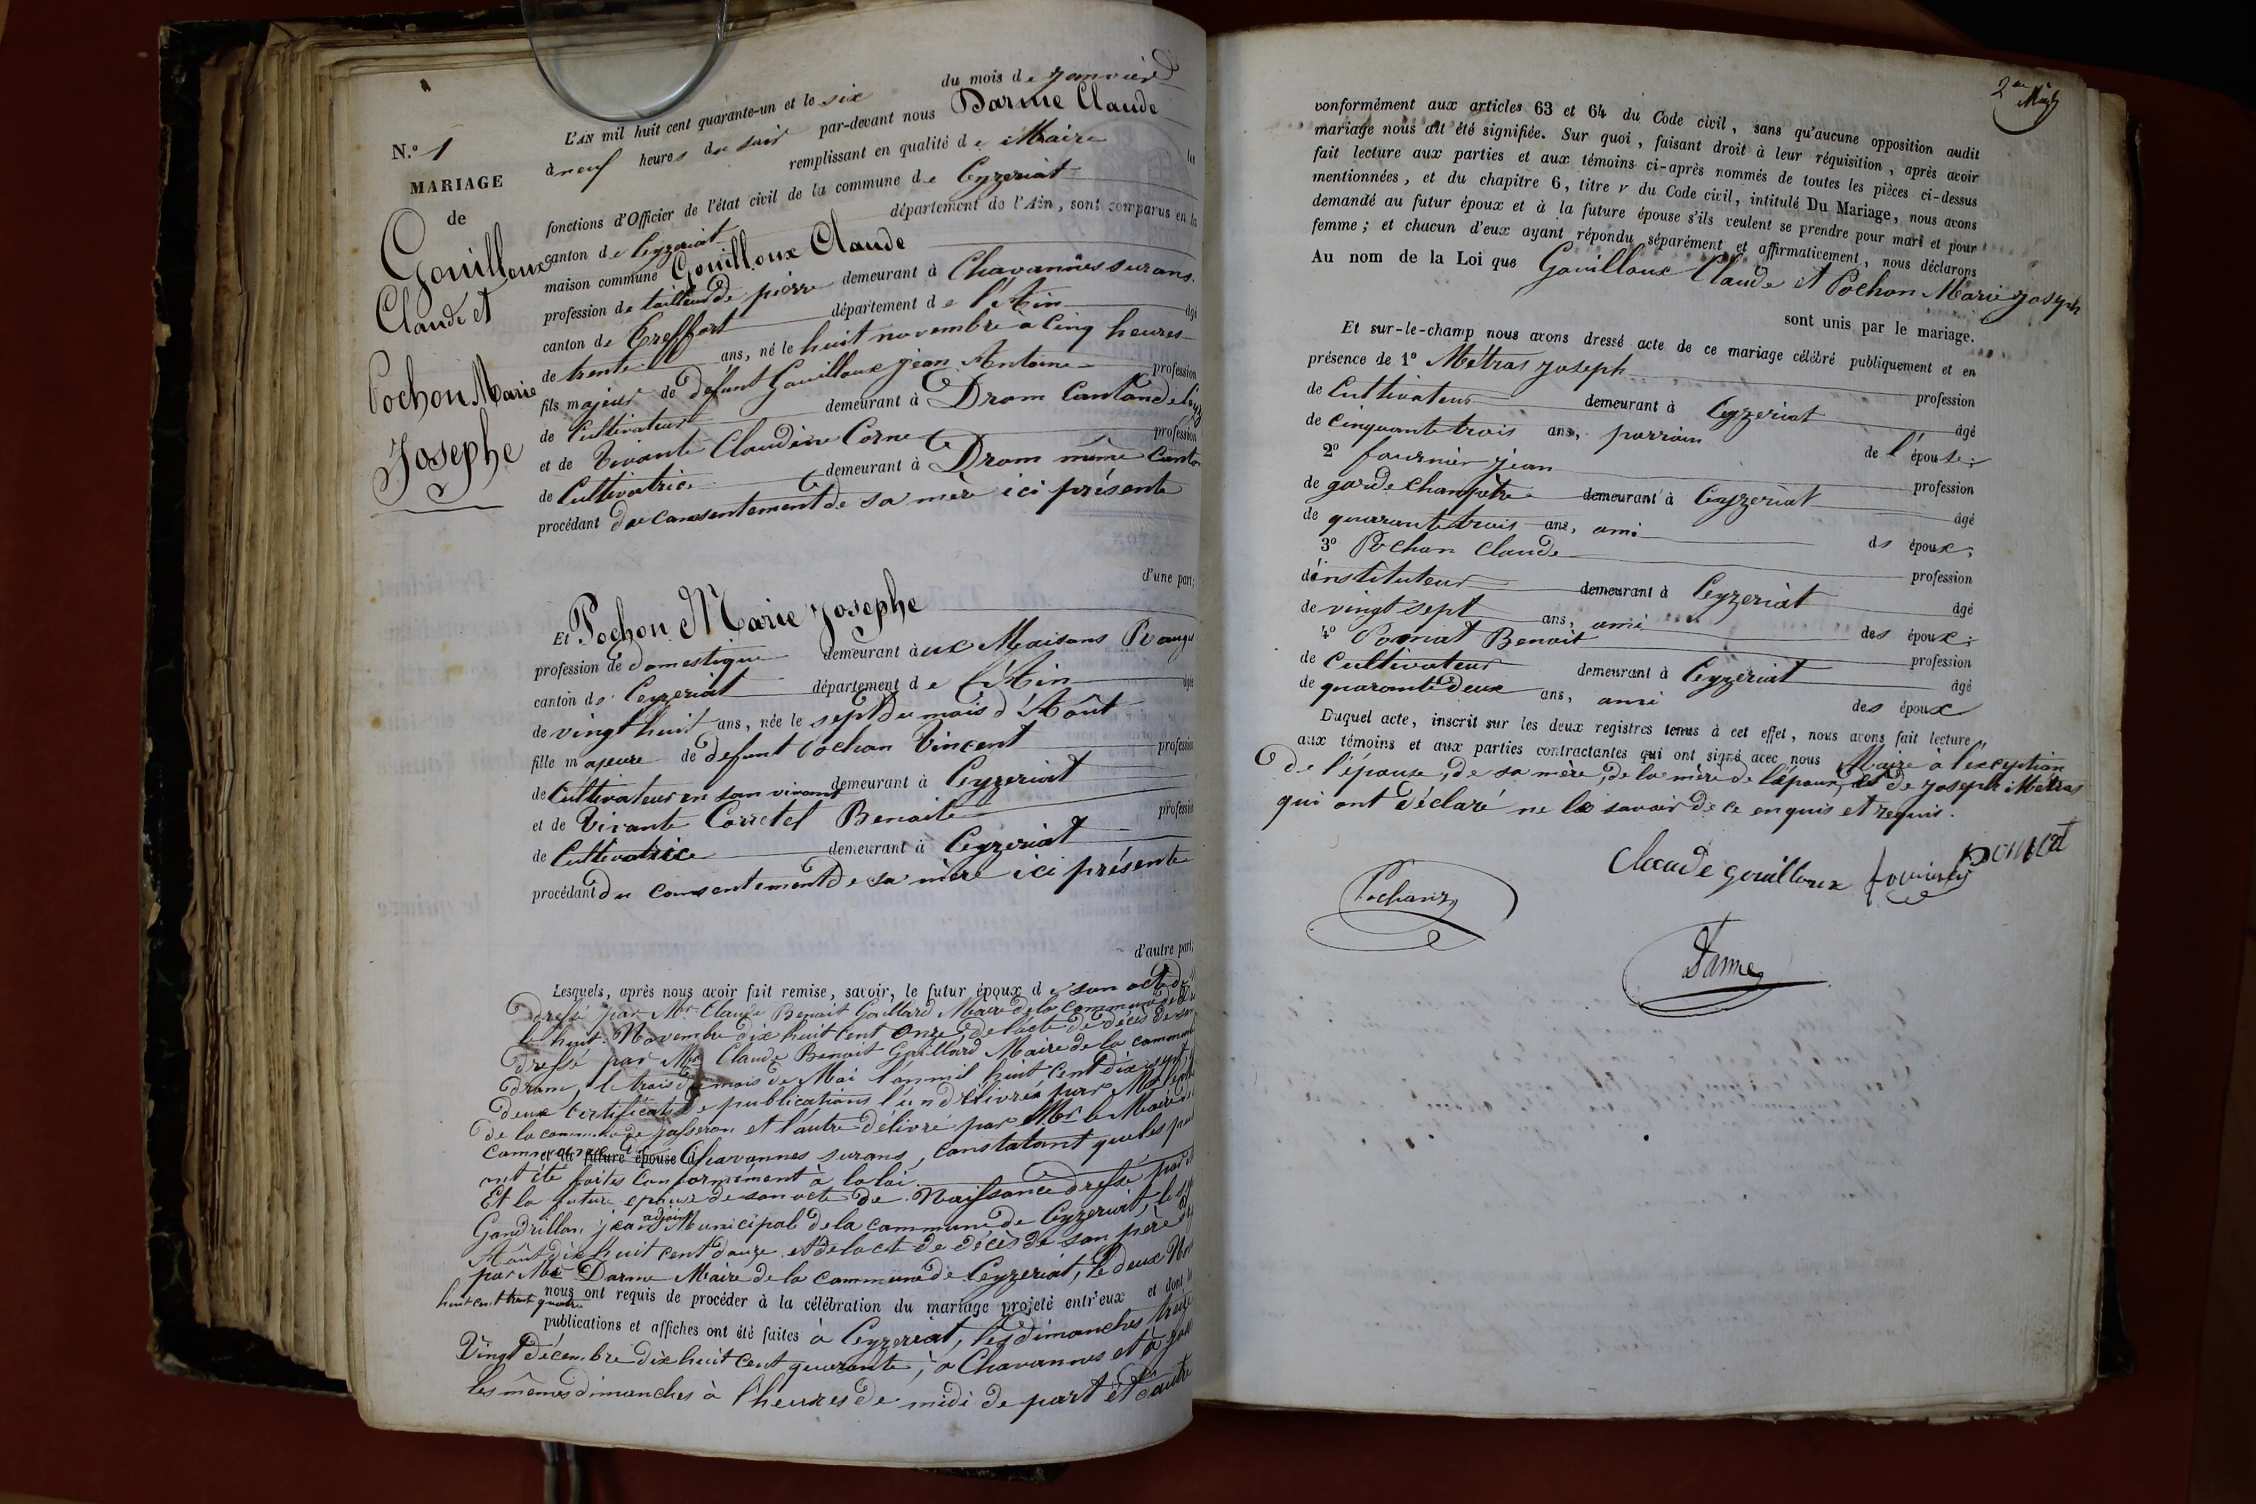 N.o 1
MARIAGE
de
Gouilloux
Claude et
Pochon Marie
Josephe
L'AN mil huit cent quarante-un et le six du mois de janvier
à neuf heures du soir par-devant nous Darme Claude
remplissant en qualité de Maire les
fonctions d'Officier de l'état civil de la commune de Ceyzeriat
canton de Ceyzeriat département de l'Ain, sont comparus en la
maison commune Gouilloux Claude
profession de tailleur de pierre demeurant à Chavannes surans.
canton de Treffort département de l'Ain âgé
de trente ans, né le huit novembre a cinq heures
fils majeur de défunt Gouilloux jean Antoine profession
de Cultivateur demeurant à Drom Canton de Ceyz
et de Vivante Claudine Cornet profession
de Cultivatrice demeurant à Drom même Canton
procédant du consentement de sa mère ici présente
d'une part;
Et Pochon Marie Josephe
profession de domestique demeurant aux Maisons Rouges
canton de Ceyzeriat département de l'Ain âgé
de vingt huit ans, née le sept du mois d'Août
fille majeure de defunt Pochon Vincent profession
de Cultivateur en son vivant demeurant à Ceyzeriat
et de Vivante Corretel Benoite profession
de Cultivatrice demeurant à Ceyzeriat
procédant du consentement de sa mère ici présente
d'autre part;
Lesquels, après nous avoir fait remise, savoir, le futur époux de son acte de
dressé par Mr Claude Benoit Gaillard Maire de la commune de
le huit Novembre dix huit cent onze de l'acte de décès de son
dressé par Mr Claude Benoit Gaillard Maire de la commune
drom, le trois du mois de Mai l'an mil huit cent dix sept,
deux certificats de publications l'un délivré par Mr
de la commune de jasseron et l'autre délivré par Mr le Maire
commune et la future épouse d Chavannes surans, constatant que les
ont été faites conformément à la loi.
Et la future epouse de son acte de Naissance dressé par
Gandrillon jean adjoint Municipal de la commune de Ceyzeriat, le sept
Août dix huit cent douze et de l'acte de décès de son père
par Mr Darme Maire de la commune de Ceyzeriat, le deux
huit cent trente quatre nous ont requis de procéder à la célébration du mariage projeté entr'eux et dont les
publications et affiches ont été faites à Ceyzeriat, les dimanches treize
Vingt décembre dix huit cent quarante, à Chavannes et à
les mêmes dimanches à l'heures de midi de part et d'autre
conformément aux articles 63 et 64 du Code civil, sans qu'aucune opposition audit
mariage nous ait été signifiée. Sur quoi, faisant droit à leur réquisition, après avoir
fait lecture aux parties et aux témoins ci-après nommés de toutes les pièces ci-dessus
mentionnées, et du chapitre 6, titre v du Code civil, intitulé Du Mariage, nous avons
demandé au futur époux et à la future épouse s'ils veulent se prendre pour mari et pour
femme; et chacun d'eux ayant répondu séparément et affirmativement, nous déclarons
Au nom de la Loi que Gouilloux Claude et Pochon Marie Joseph
sont unis par le mariage.
Et sur-le-champ nous avons dressé acte de ce mariage célébré publiquement et en
présence de 1o Métras Joseph profession
de Cultivateur demeurant à Ceyzeriat âgé
de cinquante trois ans, parrain de l'épouse;
2o fournier jean profession
de garde champêtre demeurant à Ceyzeriat âgé
de quarante trois ans, ami ds époux;
3o Pochon Claude profession
d'instituteur demeurant à Ceyzeriat âgé
de vingt sept ans, ami des époux;
4o Pomat Benoit profession
de Cultivateur demeurant à Ceyzeriat âgé
de quarante deux ans, ami des époux
Duquel acte, inscrit sur les deux registres tenus à cet effet, nous avons fait lecture
aux témoins et aux parties contractantes qui ont signé avec nous Maire à l'exception
de l'épouse, de sa mère, de la mère de l'époux, et de Joseph Métras
qui ont déclaré ne le savoir de ce enquis et requis.
Claude gouilloux fournier pomat
Pochon
Darme